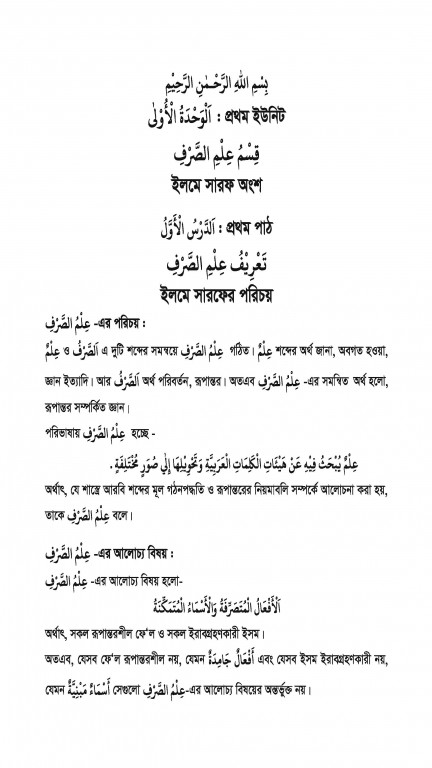 بِسْمِ اللهِ الرَّحْمٰنِ الرَّحِيْمِ
اَلْوَحْدَةُ الْأُوْلٰى : প্রথম ইউনিট
قِسْمُ عِلْمِ الصَّرْفِ
ইলমে সারফ অংশ
اَلدَّرْسُ الْأَوَّلُ : প্রথম পাঠ
تَعْرِيْفُ عِلْمِ الصَّرْفِ
ইলমে সারফের পরিচয়
عِلْمُ الصَّرْفِ -এর পরিচয় :
عِلْمٌ ও اَلصَّرْفُ এ দুটি শব্দের সমন্বয়ে عِلْمُ الصَّرْفِ গঠিত। عِلْمٌ শব্দের অর্থ জানা, অবগত হওয়া,
জ্ঞান ইত্যাদি। আর اَلصَّرْفُ অর্থ পরিবর্তন, রূপান্তর। অতএব عِلْمُ الصَّرْفِ -এর সমন্বিত অর্থ হলো,
রূপান্তর সম্পর্কিত জ্ঞান।
পরিভাষায় عِلْمُ الصَّرْفِ হচ্ছে -
عِلْمٌ يُبْحَثُ فِيْهِ عَنْ هَيْئَاتِ الْكَلِمَاتِ الْعَرَبِيَّةِ وَتَحْوِيْلِهَا إِلٰى صُوَرٍ مُخْتَلِفَةٍ .
অর্থাৎ, যে শাস্ত্রে আরবি শব্দের মূল গঠনপদ্ধতি ও রূপান্তরের নিয়মাবলি সম্পর্কে আলোচনা করা হয়,
তাকে عِلْمُ الصَّرْفِ বলে।
عِلْمُ الصَّرْفِ -এর আলোচ্য বিষয় :
عِلْمُ الصَّرْفِ -এর আলোচ্য বিষয় হলো-
اَلْأَفْعَالُ الْمُتَصَرِّفَةُ وَالْأَسْمَاءُ الْمُتَمَكِّنَةُ
অর্থাৎ, সকল রূপান্তরশীল ফে'ল ও সকল ইরাবগ্রহণকারী ইসম।
অতএব, যেসব ফে'ল রূপান্তরশীল নয়, যেমন أَفْعَالٌ جَامِدَةٌ এবং যেসব ইসম ইরাবগ্রহণকারী নয়,
যেমন أَسْمَاءٌ مَبْنِيَّةٌ সেগুলো عِلْمُ الصَّرْفِ-এর আলোচ্য বিষয়ের অন্তর্ভুক্ত নয়।